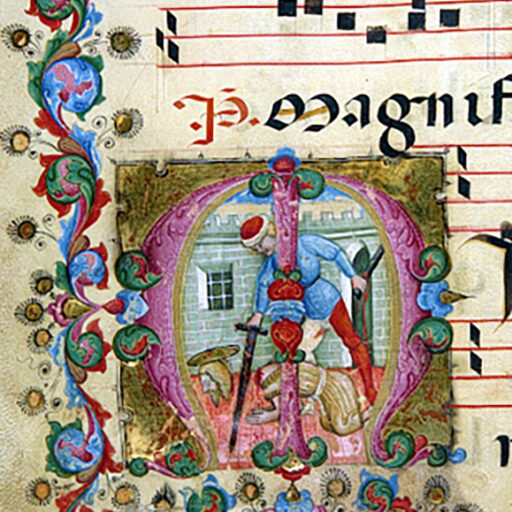 P. magnif